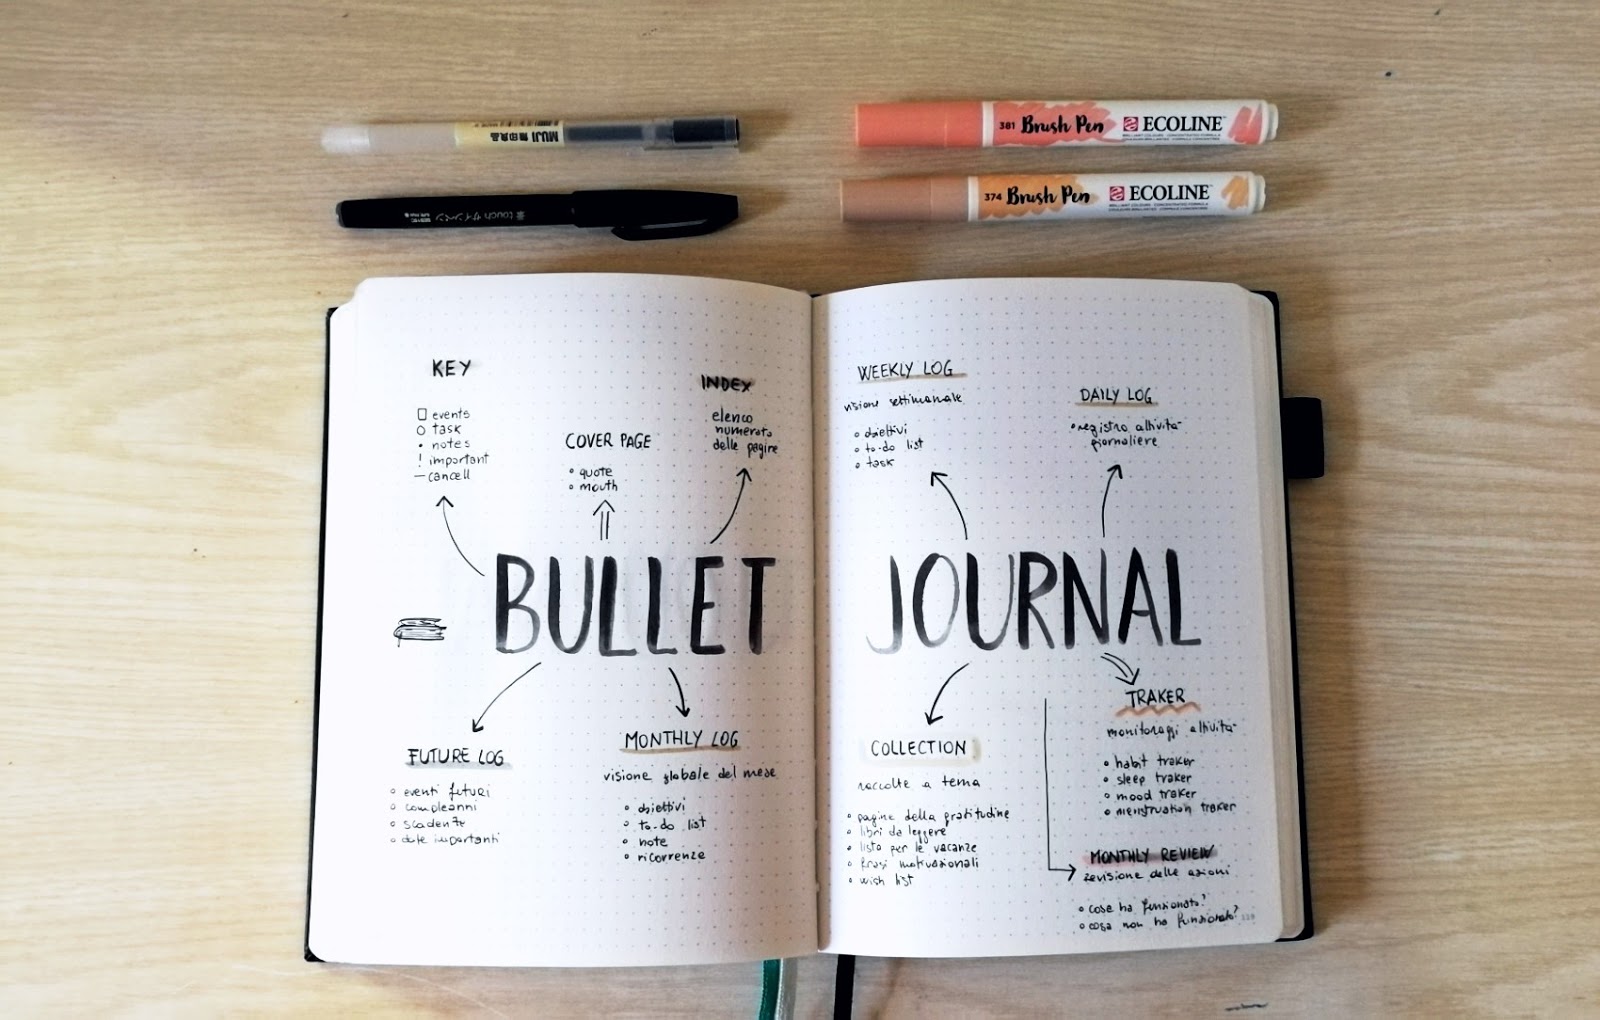 MUJI 無印良品
touch サインペン
381 Brush Pen ECOLINE
374 Brush Pen ECOLINE
KEY
events
task
notes
! important
— cancell
COVER PAGE
quote
mouth
INDEX
elenco
numerato
delle pagine
WEEKLY LOG
visione settimanale
obiettivi
to-do list
task
DAILY LOG
registro attività
giornaliere
BULLET JOURNAL
FUTURE LOG
eventi futuri
compleanni
scadenze
date importanti
MONTHLY LOG
visione globale del mese
obiettivi
to-do list
note
ricorrenze
COLLECTION
raccolte a tema
pagine della gratitudine
libri da leggere
lista per le vacanze
frasi motivazionali
wish list
TRAKER
monitoraggi attività
habit traker
sleep traker
mood traker
menstruation traker
MONTHLY REVIEW
revisione delle azioni
cosa ha funzionato?
cosa non ha funzionato?